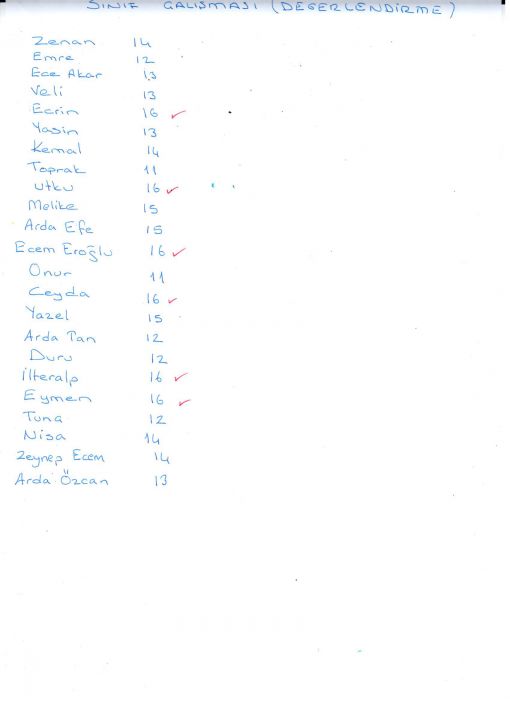 SINIF ÇALIŞMASI (DEĞERLENDİRME)
Zenan 14
Emre 12
Ece Akar 13
Veli 13
Ecrin 16 ✓
Yasin 13
Kemal 14
Toprak 11
Utku 16 ✓
Melike 15
Arda Efe 15
Ecem Eroğlu 16 ✓
Onur 11
Ceyda 16 ✓
Yazel 15
Arda Tan 12
Duru 12
İlteralp 16 ✓
Eymen 16 ✓
Tuna 12
Nisa 14
Zeynep Ecem 14
Arda Özcan 13